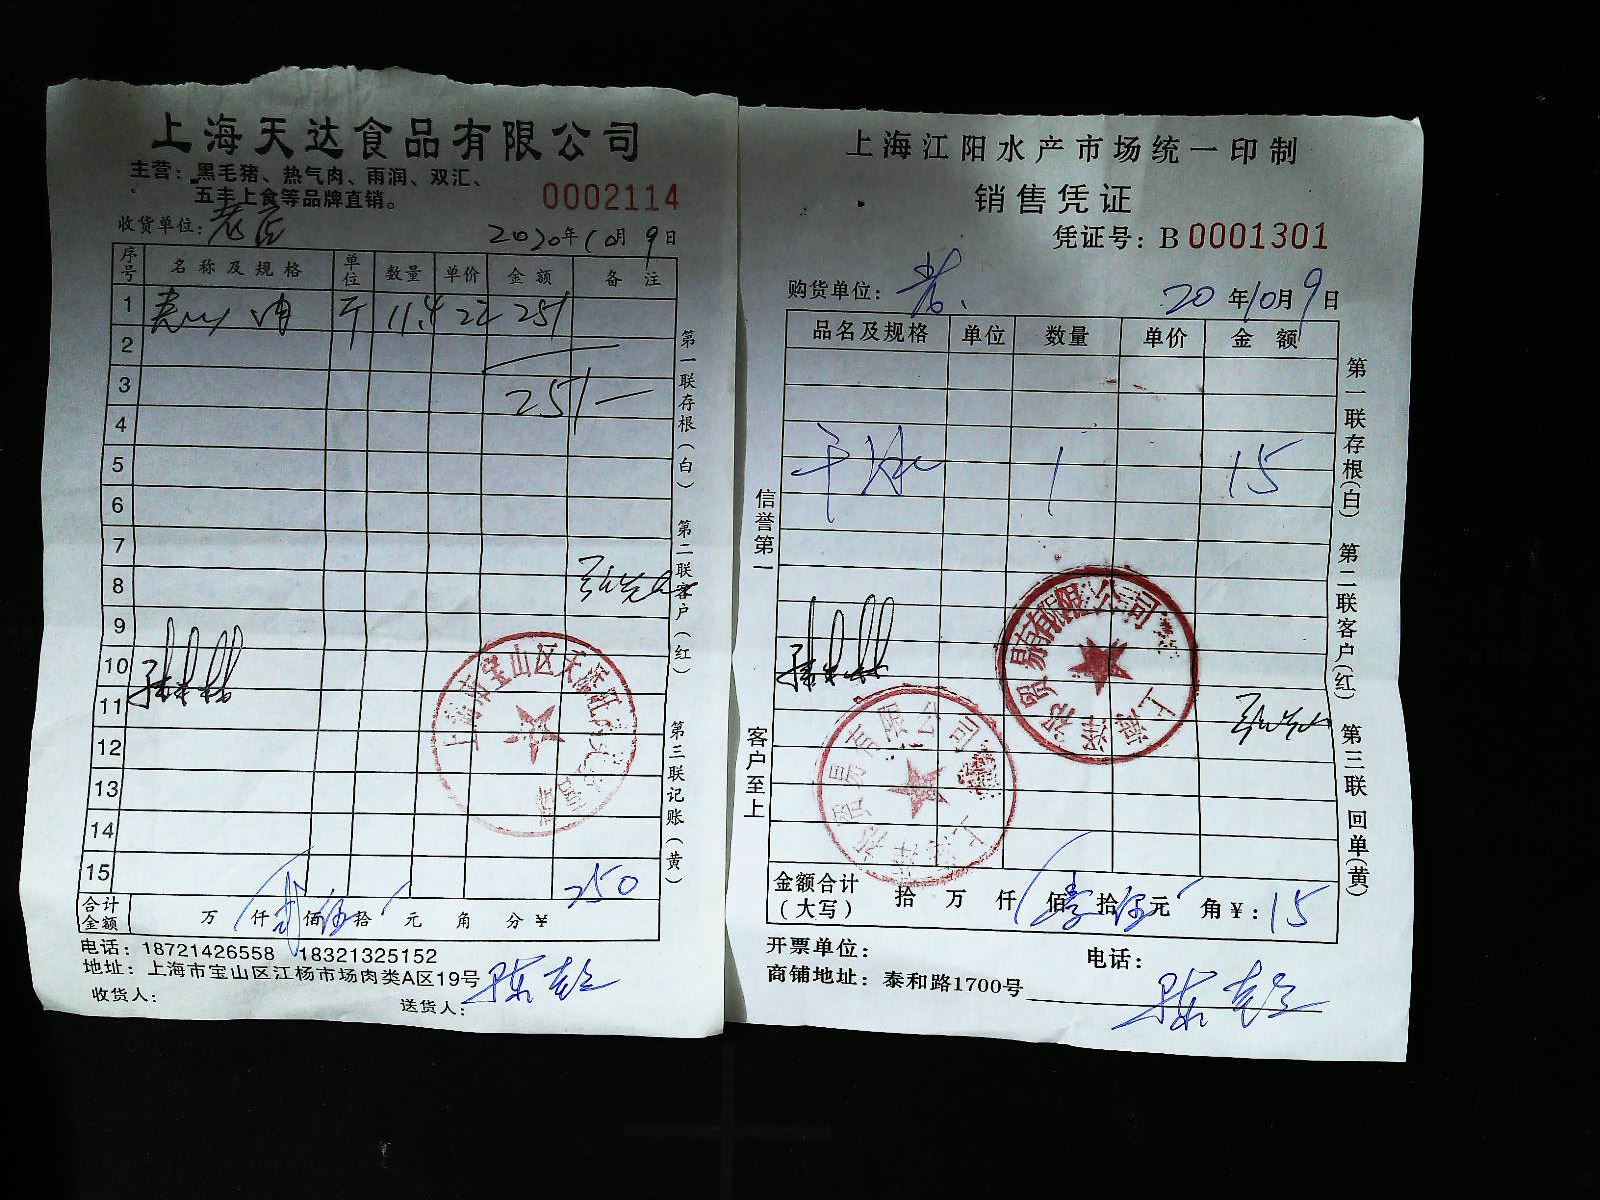 上海天达食品有限公司
主营：黑毛猪、热气肉、雨润、双汇、
五丰上食等品牌直销。
0002114
收货单位：
2020年10月9日
序号 名称及规格 单位 数量 单价 金额 备注
1 肉 斤 11.4 22 251
2
3 251
4
5
6
7
8
9
10
11
12
13
14
15
合计金额 万 仟 贰佰伍拾 元 角 分 ¥ 250
电话：18721426558 18321325152
地址：上海市宝山区江杨市场肉类A区19号
收货人： 送货人：
第一联存根（白） 第二联客户（红） 第三联记账（黄）
上海江阳水产市场统一印制
销售凭证
凭证号：B 0001301
购货单位：
20年10月9日
品名及规格 单位 数量 单价 金额
干冰 1 15
金额合计（大写） 拾 万 仟 佰 壹拾伍元 角 ¥：15
开票单位： 电话：
商铺地址：泰和路1700号
信誉第一 客户至上
第一联存根（白） 第二联客户（红） 第三联回单（黄）